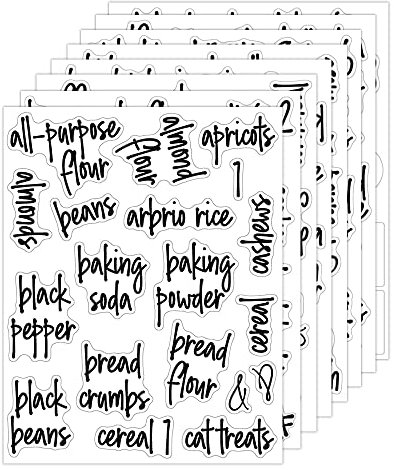 all-purpose
flour
almond
flour
apricots
1
almonds
beans
arprio rice
cashews
baking
soda
baking
powder
black
pepper
cereal
bread
crumbs
bread
flour
& D
black
beans
cereal 1
cat treats